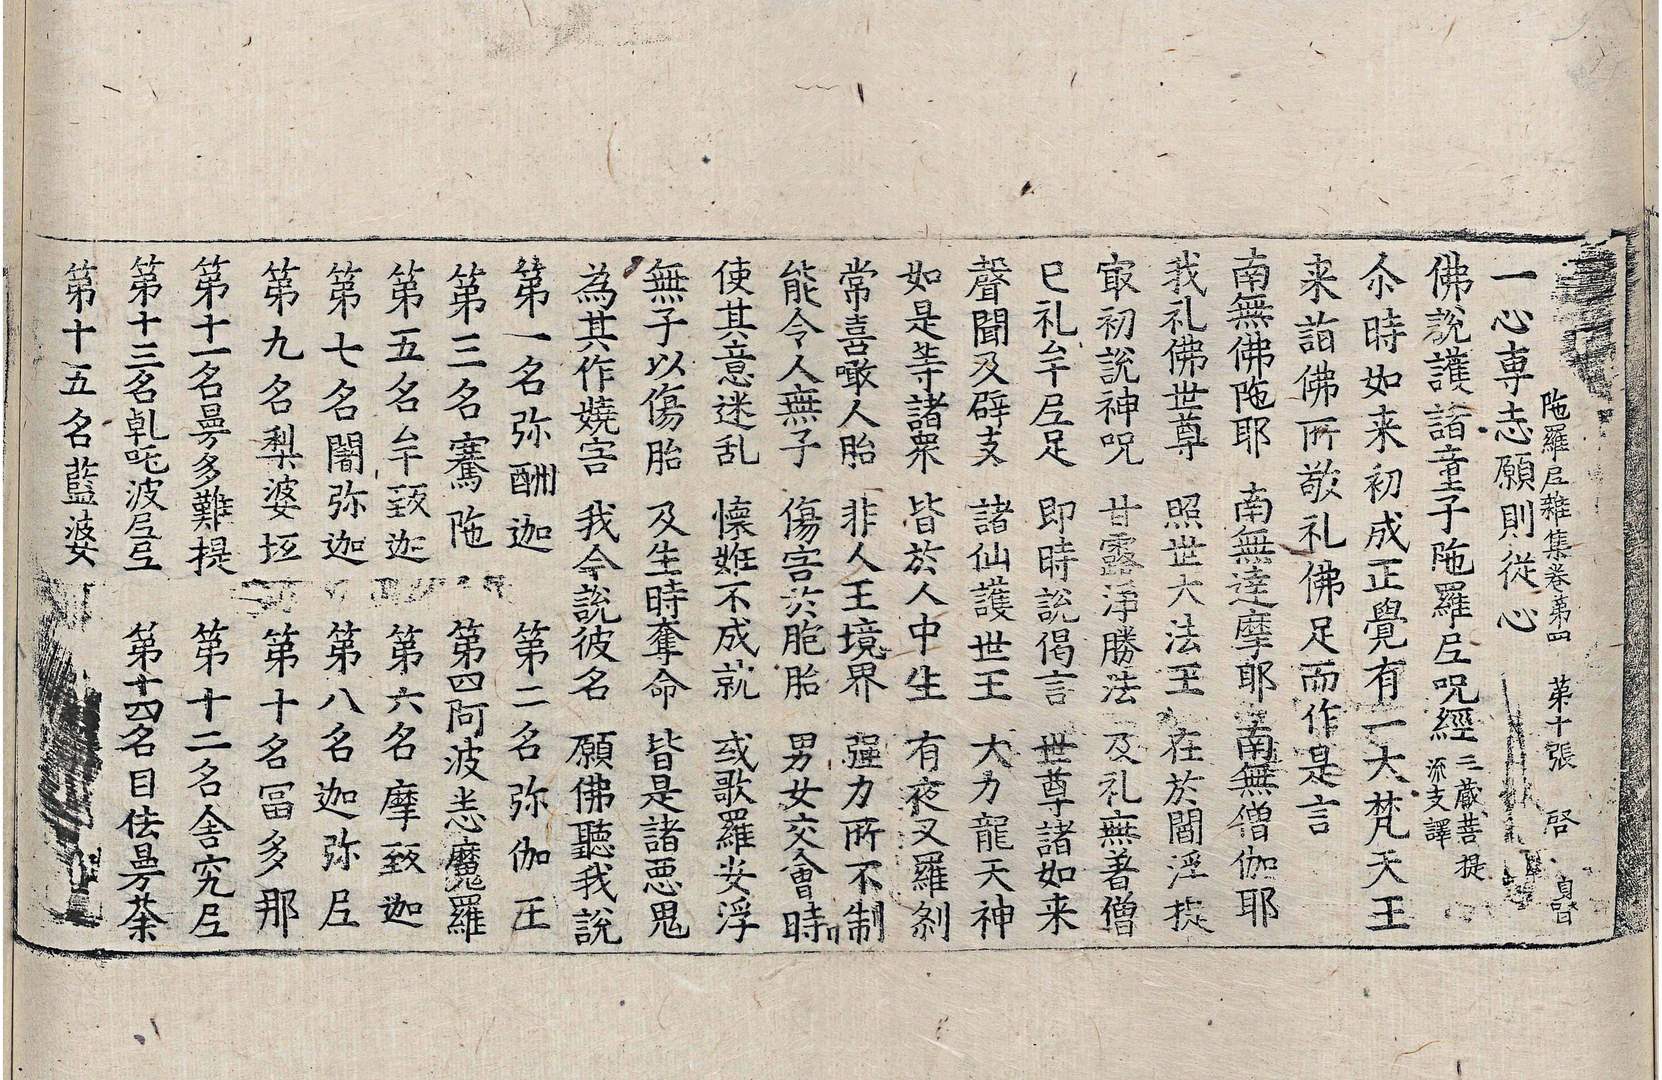 陁羅尼雜集卷苐四 苐十張 啓
一心專志願則從心
佛說護諸童子陁羅尼呪經 三蔵菩提流支譯
尒時如来初成正覺有一大梵天王
来詣佛所敬礼佛足而作是言
南無佛陁耶 南無達摩耶 南無僧伽耶
我礼佛世尊 照世大法王 在於閻浮提
㝡初說神呪 甘露淨勝法 及礼無著僧
已礼牟尼足 即時說偈言 世尊諸如来
聲聞及辟支 諸仙護世王 大力龍天神
如是等諸衆 皆於人中生 有夜叉羅剎
常喜噉人胎 非人王境界 强力所不制
能令人無子 傷害於胞胎 男女交會時
使其意迷乱 懷姙不成就 或歌羅安浮
無子以傷胎 及生時奪命 皆是諸悪鬼
為其作嬈害 我今說彼名 願佛聽我說
第一名弥酬迦 第二名弥伽王
第三名騫陁 第四阿波悉魔羅
第五名牟致迦 第六名摩致迦
第七名闍弥迦 第八名迦弥尼
第九名梨婆坻 第十名冨多那
第十一名曼多難提 第十二名舍究尼
第十三名乹吒波尼 第十四名目佉曼荼
第十五名藍婆